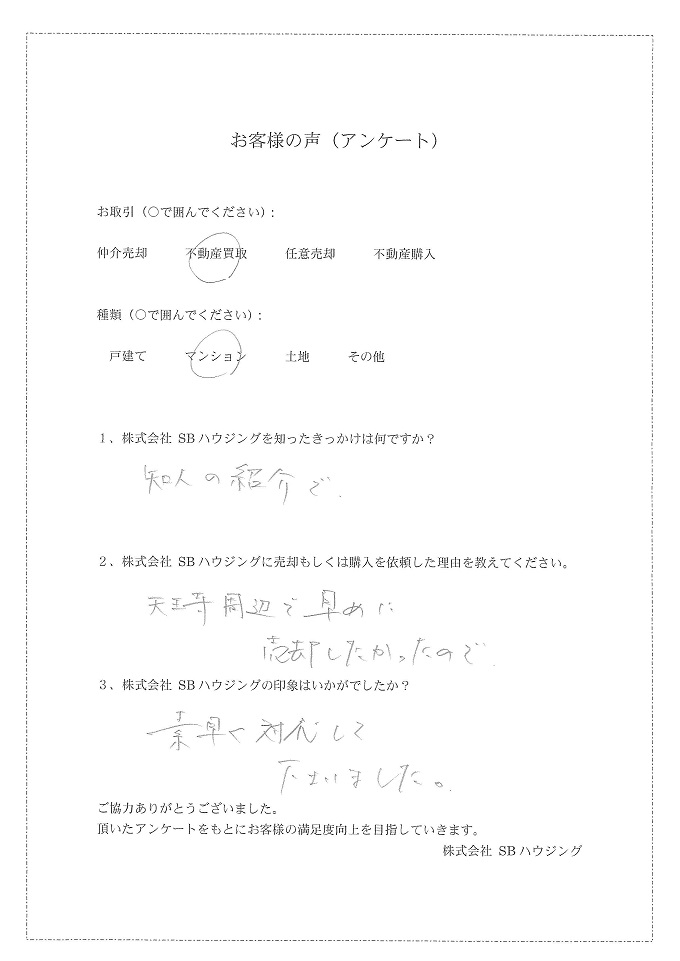 お客様の声（アンケート）
お取引（○で囲んでください）:
仲介売却　不動産買取　任意売却　不動産購入
種類（○で囲んでください）:
戸建て　マンション　土地　その他
１、株式会社 SBハウジングを知ったきっかけは何ですか？
知人の紹介で.
２、株式会社 SBハウジングに売却もしくは購入を依頼した理由を教えてください。
天王寺周辺で早めに
売却したかったので.
３、株式会社 SBハウジングの印象はいかがでしたか？
素早く対応して
下さいました。
ご協力ありがとうございました。
頂いたアンケートをもとにお客様の満足度向上を目指していきます。
株式会社 SBハウジング